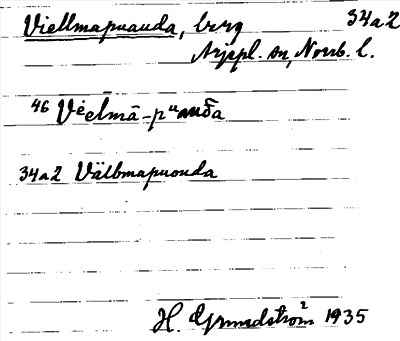 Viellmapuauda, berg 34a2
Arjepl. sn, Norrb. l.
46 Vèelmā-pᵘauða
34a2 Välbmapuouda
H. Grundström² 1935